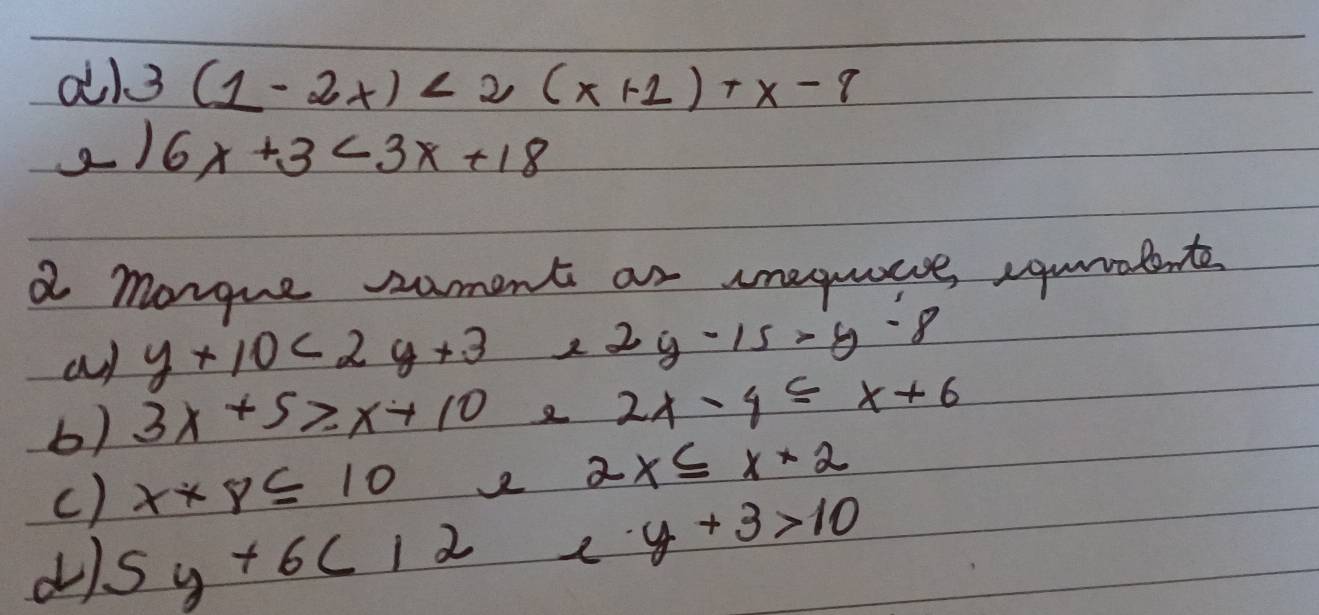 d) 3 (1 - 2x) < 2 (x + 1) + x - 8
e) 6x + 3 < 3x + 18
2 Marque somente as inequações equivalentes
a) y + 10 < 2y + 3 e 2y - 15 > y - 8
b) 3x + 5 ≥ x + 10 e 2x - 4 ≤ x + 6
c) x + 8 ≤ 10 e 2x ≤ x + 2
d) 5y + 6 < 12 e y + 3 > 10